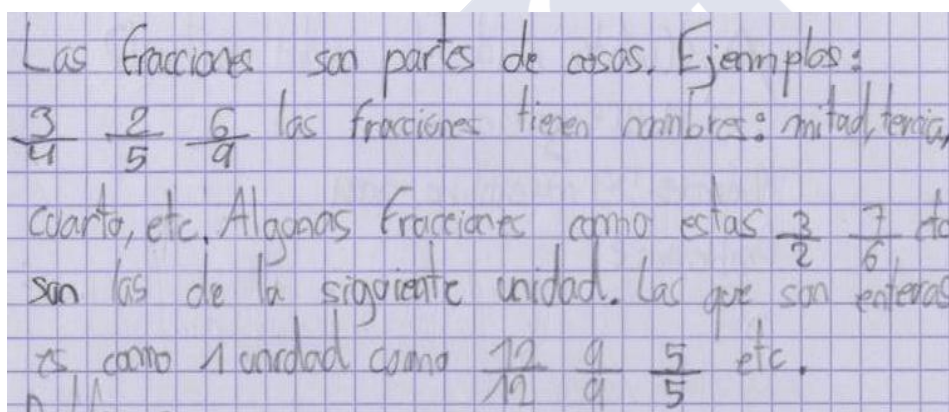 Las fracciones son partes de cosas. Ejemplos:
3/4 2/5 6/9 las fracciones tienen nombres: mitad, tercio,
cuarto, etc. Algunas fracciones como estas 3/2 7/6 etc
son las de la siguiente unidad. Las que son enteras
es como 1 unidad como 12/12 9/9 5/5 etc.